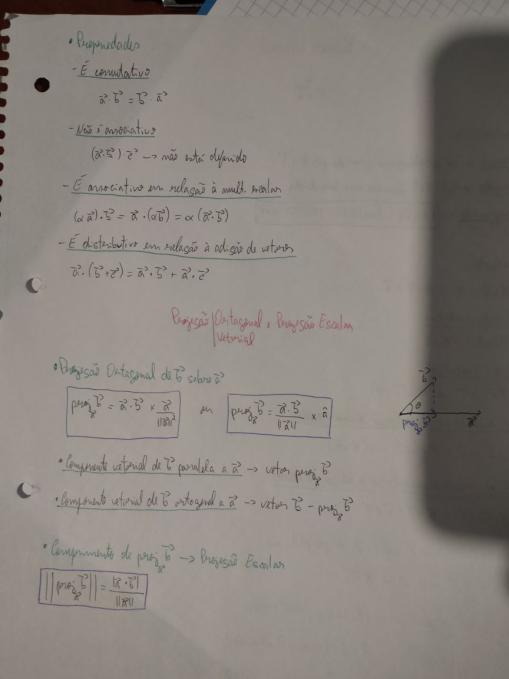 • Propriedades
- É comutativo
a⃗ · b⃗ = b⃗ · a⃗
- Não é associativo
(a⃗ · b⃗) · c⃗ → não está definido
- É associativo em relação à mult. escalar
(α a⃗) · b⃗ = a⃗ · (α b⃗) = α (a⃗ · b⃗)
- É distributivo em relação à adição de vetores
a⃗ · (b⃗ + c⃗) = a⃗ · b⃗ + a⃗ · c⃗
Projeção | Ortogonal e Projeção Escalar
Vetorial
• Projeção Ortogonal de b⃗ sobre a⃗
proj_a⃗ b⃗ = a⃗ · b⃗ × a⃗ / ||a⃗||² ou proj_a⃗ b⃗ = a⃗ · b⃗ / ||a⃗|| × â
b⃗
θ
proj_a⃗ b⃗ a⃗
• Componente vetorial de b⃗ paralela a a⃗ → vetor proj_a⃗ b⃗
• Componente vetorial de b⃗ ortogonal a a⃗ → vetor b⃗ - proj_a⃗ b⃗
• Comprimento de proj_a⃗ b⃗ → Projeção Escalar
||proj_a⃗ b⃗|| = |a⃗ · b⃗| / ||a⃗||